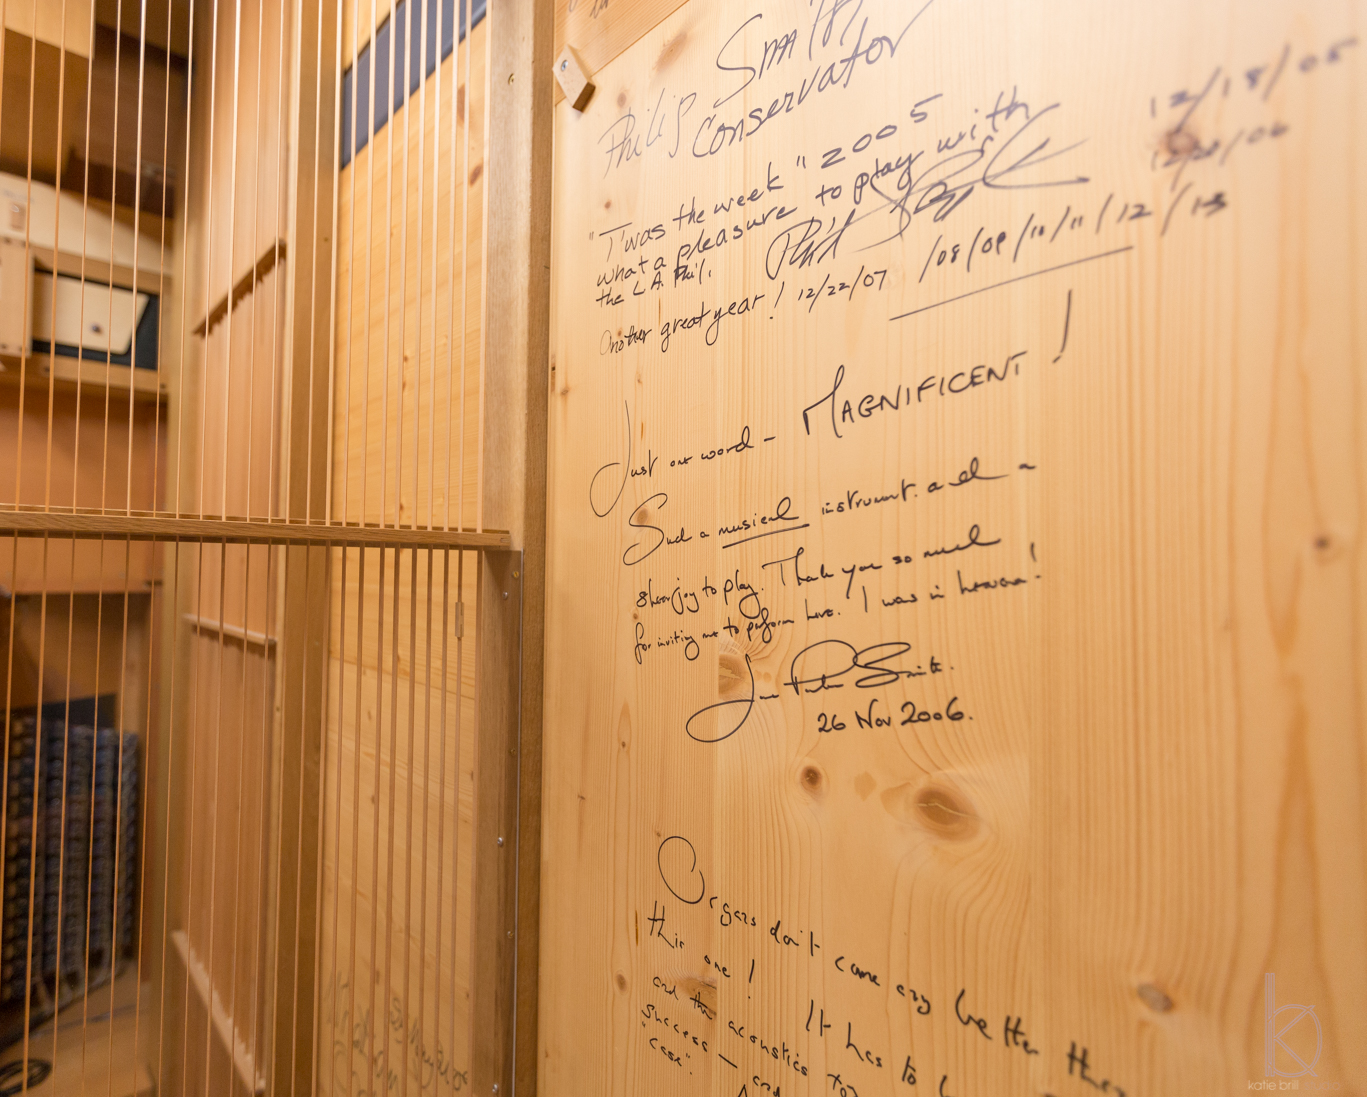 Philip Smith
Conservator
"T'was the week" 2005
what a pleasure to play with
the L.A. Phil.
12/18/05
12/20/06
Another great year! 12/22/07 /08/09/10/11/12/13
Just one word - MAGNIFICENT!
Such a musical instrument. and a
sheer joy to play. Thank you so much
for inviting me to perform here. I was in heaven!
Jane Parker Smith.
26 Nov 2006.
Organs don't come any better than
this one! It has to
and the acoustics too
success - and
"case".
katie brill